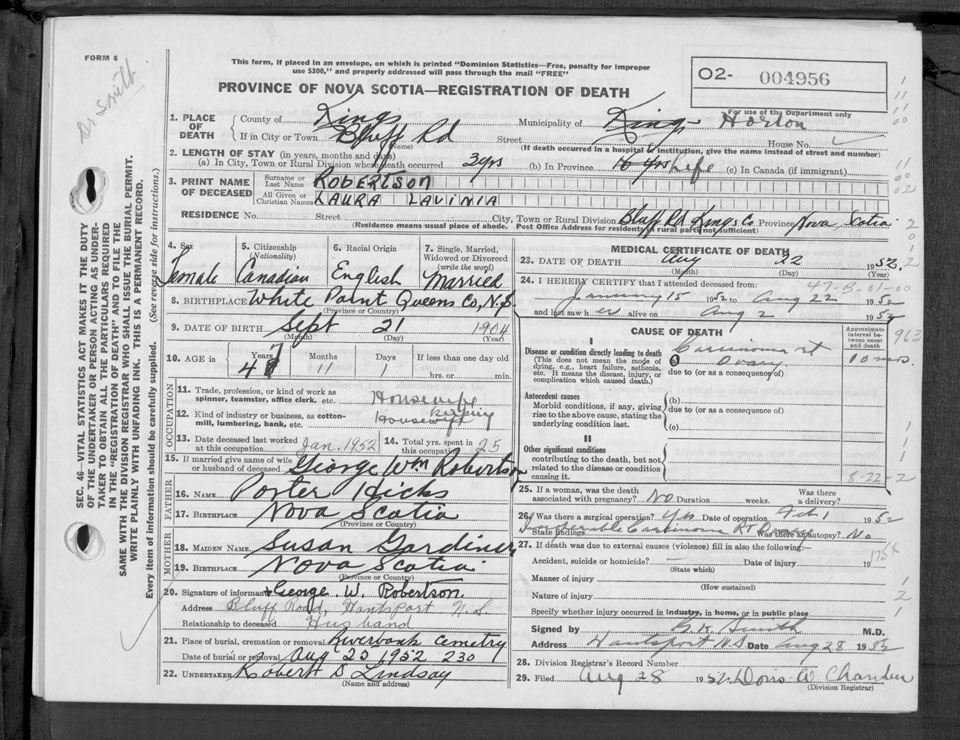 FORM 6
Dr Smith.
This form, if placed in an envelope, on which is printed "Dominion Statistics—Free, penalty for improper
use $300," and properly addressed will pass through the mail "FREE"
PROVINCE OF NOVA SCOTIA—REGISTRATION OF DEATH
O2- 004956
For use of the Department only
1. PLACE OF DEATH County of Kings Municipality of Kings Horton
If in City or Town Bluff Rd Street House No.
(Name) (If death occurred in a hospital or institution, give the name instead of street and number)
2. LENGTH OF STAY (in years, months and days)
(a) In City, Town or Rural Division where death occurred 3 yrs (b) In Province Life (c) In Canada (if immigrant)
3. PRINT NAME OF DECEASED Surname or Last Name ROBERTSON
All Given or Christian Names LAURA LAVINIA
RESIDENCE No. Street City, Town or Rural Division Bluff Rd Kings Co Province Nova Scotia
(Residence means usual place of abode. Post Office Address for residents in rural parts not sufficient)
4. Sex Female
5. Citizenship (Nationality) Canadian
6. Racial Origin English
7. Single, Married, Widowed or Divorced (write the word) Married
8. BIRTHPLACE White Point Queens Co, N.S
(Province or Country)
9. DATE OF BIRTH Sept 21 1904
(Month) (Day) (Year)
10. AGE in Years 47 Months 11 Days 1 If less than one day old
hrs. or min.
OCCUPATION
11. Trade, profession, or kind of work as
spinner, teamster, office clerk, etc. Housewife
12. Kind of industry or business, as cotton-
mill, lumbering, bank, etc. Housekeeping
13. Date deceased last worked
at this occupation Jan. 1952 14. Total yrs. spent in
this occupation 25
15. If married give name of wife
or husband of deceased George Wm Robertson
FATHER
16. NAME Porter Hicks
17. BIRTHPLACE Nova Scotia
(Province or Country)
MOTHER
18. MAIDEN NAME Susan Gardiner
19. BIRTHPLACE Nova Scotia
(Province or Country)
20. Signature of informant George W. Robertson
Address Bluff Road, Hantsport N.S.
Relationship to deceased Husband
21. Place of burial, cremation or removal Riverbank Cemetry
Date of burial or removal Aug 25 1952 230
22. UNDERTAKER Robert D Lindsay
(Name and address)
MEDICAL CERTIFICATE OF DEATH
23. DATE OF DEATH Aug 22 1952
(Month) (Day) (Year)
24. I HEREBY CERTIFY that I attended deceased from:
January 15 1952 to Aug 22 1952
and last saw her alive on Aug 2 1952
CAUSE OF DEATH
Approximate interval between onset and death
I
Disease or condition directly leading to death
(This does not mean the mode of
dying, e.g., heart failure, asthenia,
etc. It means the disease, injury, or
complication which caused death.)
Carcinoma rt
Ovary 10 mos
due to (or as a consequence of)
Antecedent causes
Morbid conditions, if any, giving
rise to the above cause, stating the
underlying condition last.
(b)
due to (or as a consequence of)
(c)
II
Other significant conditions
contributing to the death, but not
related to the disease or condition
causing it.
8-22
25. If a woman, was the death
associated with pregnancy? No Duration weeks. Was there
a delivery?
26. Was there a surgical operation? Yes Date of operation Feb 1 1952
State findings Inoperable Carcinoma Rt Ovary Was there an autopsy? No
27. If death was due to external causes (violence) fill in also the following:—
Accident, suicide or homicide? Date of injury 19
(State which)
Manner of injury
(How sustained)
Nature of injury
Specify whether injury occurred in industry, in home, or in public place
Signed by Smith M.D.
Address Hantsport NS Date Aug 28 1952
28. Division Registrar's Record Number
29. Filed Aug 28 1952
(Division Registrar)
SEC. 46—VITAL STATISTICS ACT MAKES IT THE DUTY
OF THE UNDERTAKER OR PERSON ACTING AS UNDER-
TAKER TO OBTAIN ALL THE PARTICULARS REQUIRED
IN THE "REGISTRATION OF DEATH" AND TO FILE THE
SAME WITH THE DIVISION REGISTRAR WHO SHALL ISSUE THE BURIAL PERMIT.
WRITE PLAINLY WITH UNFADING INK. THIS IS A PERMANENT RECORD.
Every item of information should be carefully supplied. (See reverse side for instructions.)